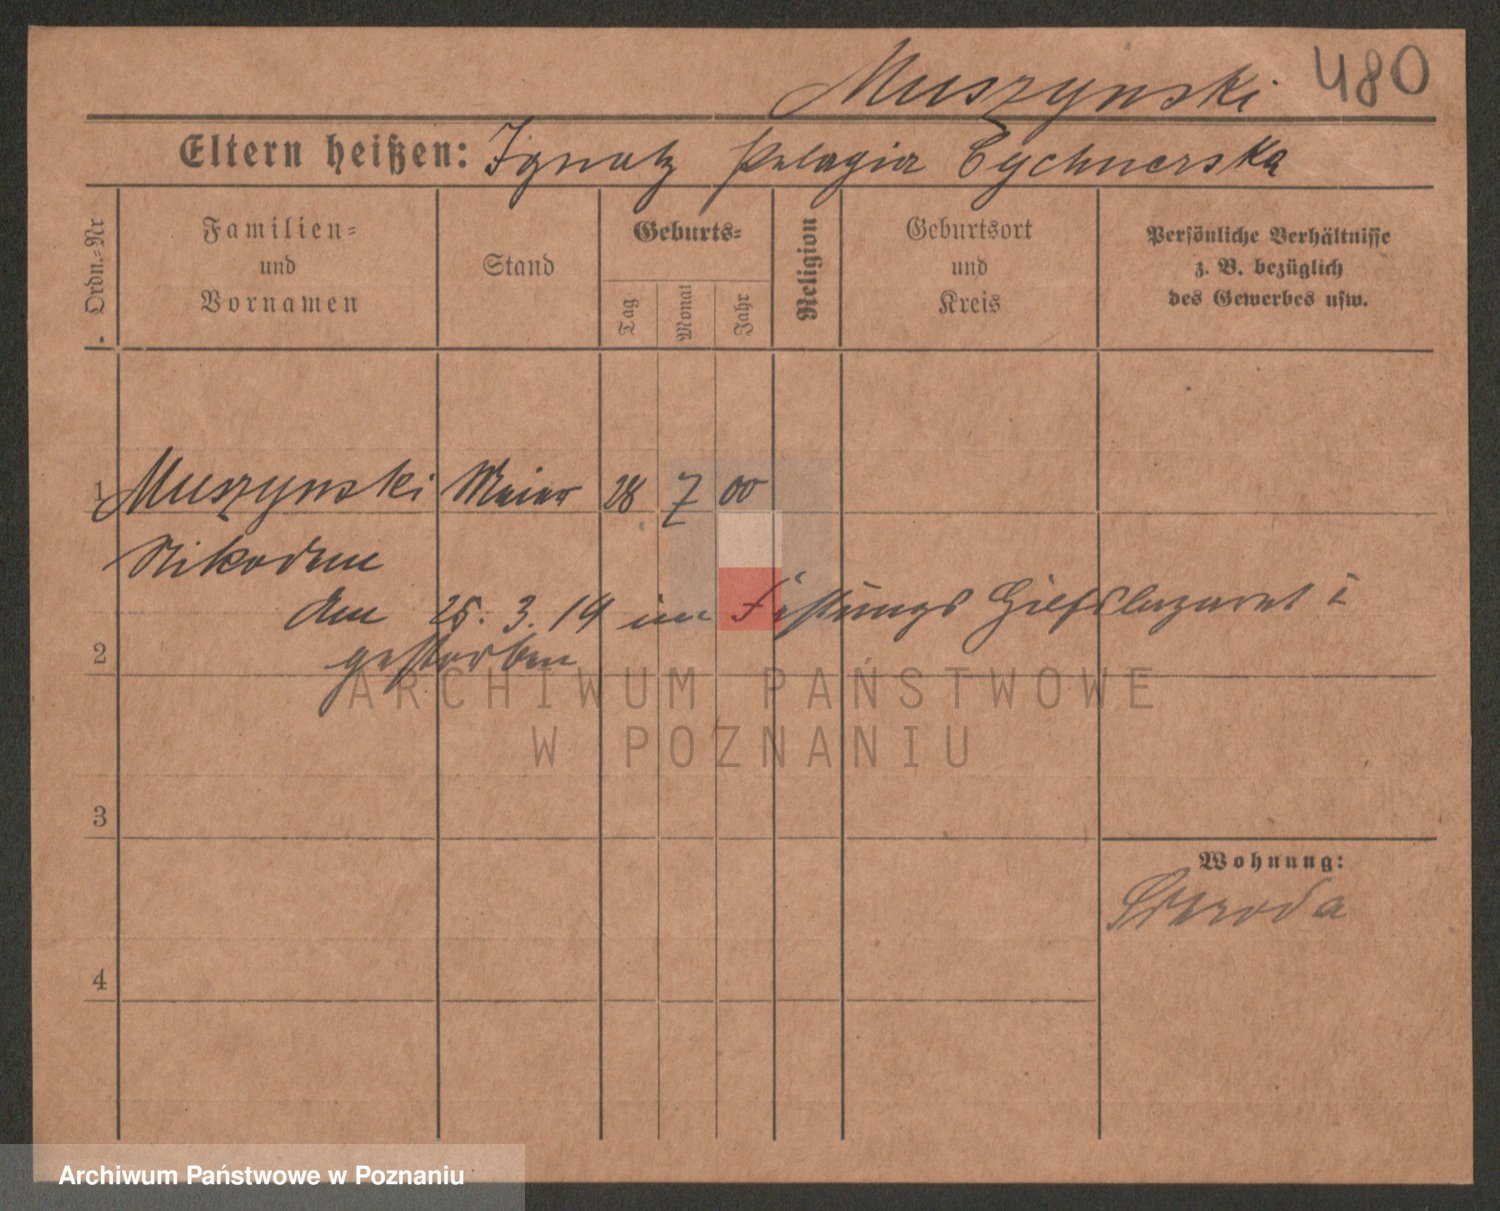 Muszynski 480
Eltern heißen: Ignatz Pelagia Cychnerska
Ordn.-Nr
Familien-
und
Vornamen
Stand
Geburts-
Tag
Monat
Jahr
Religion
Geburtsort
und
Kreis
Persönliche Verhältnisse
z. B. bezüglich
des Gewerbes usw.
1 Muszynski 28 7 00
Nikodem
den 25. 3. 19 im Festungs Hilfslazaret I
2 gestorben
ARCHIWUM PAŃSTWOWE
W POZNANIU
3
Wohnung:
Schroda
4
Archiwum Państwowe w Poznaniu